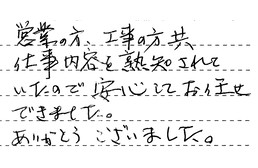 営業の方、工事の方共
仕事内容を熟知されて
いたので安心してお任せ
できました。
ありがとうございました。